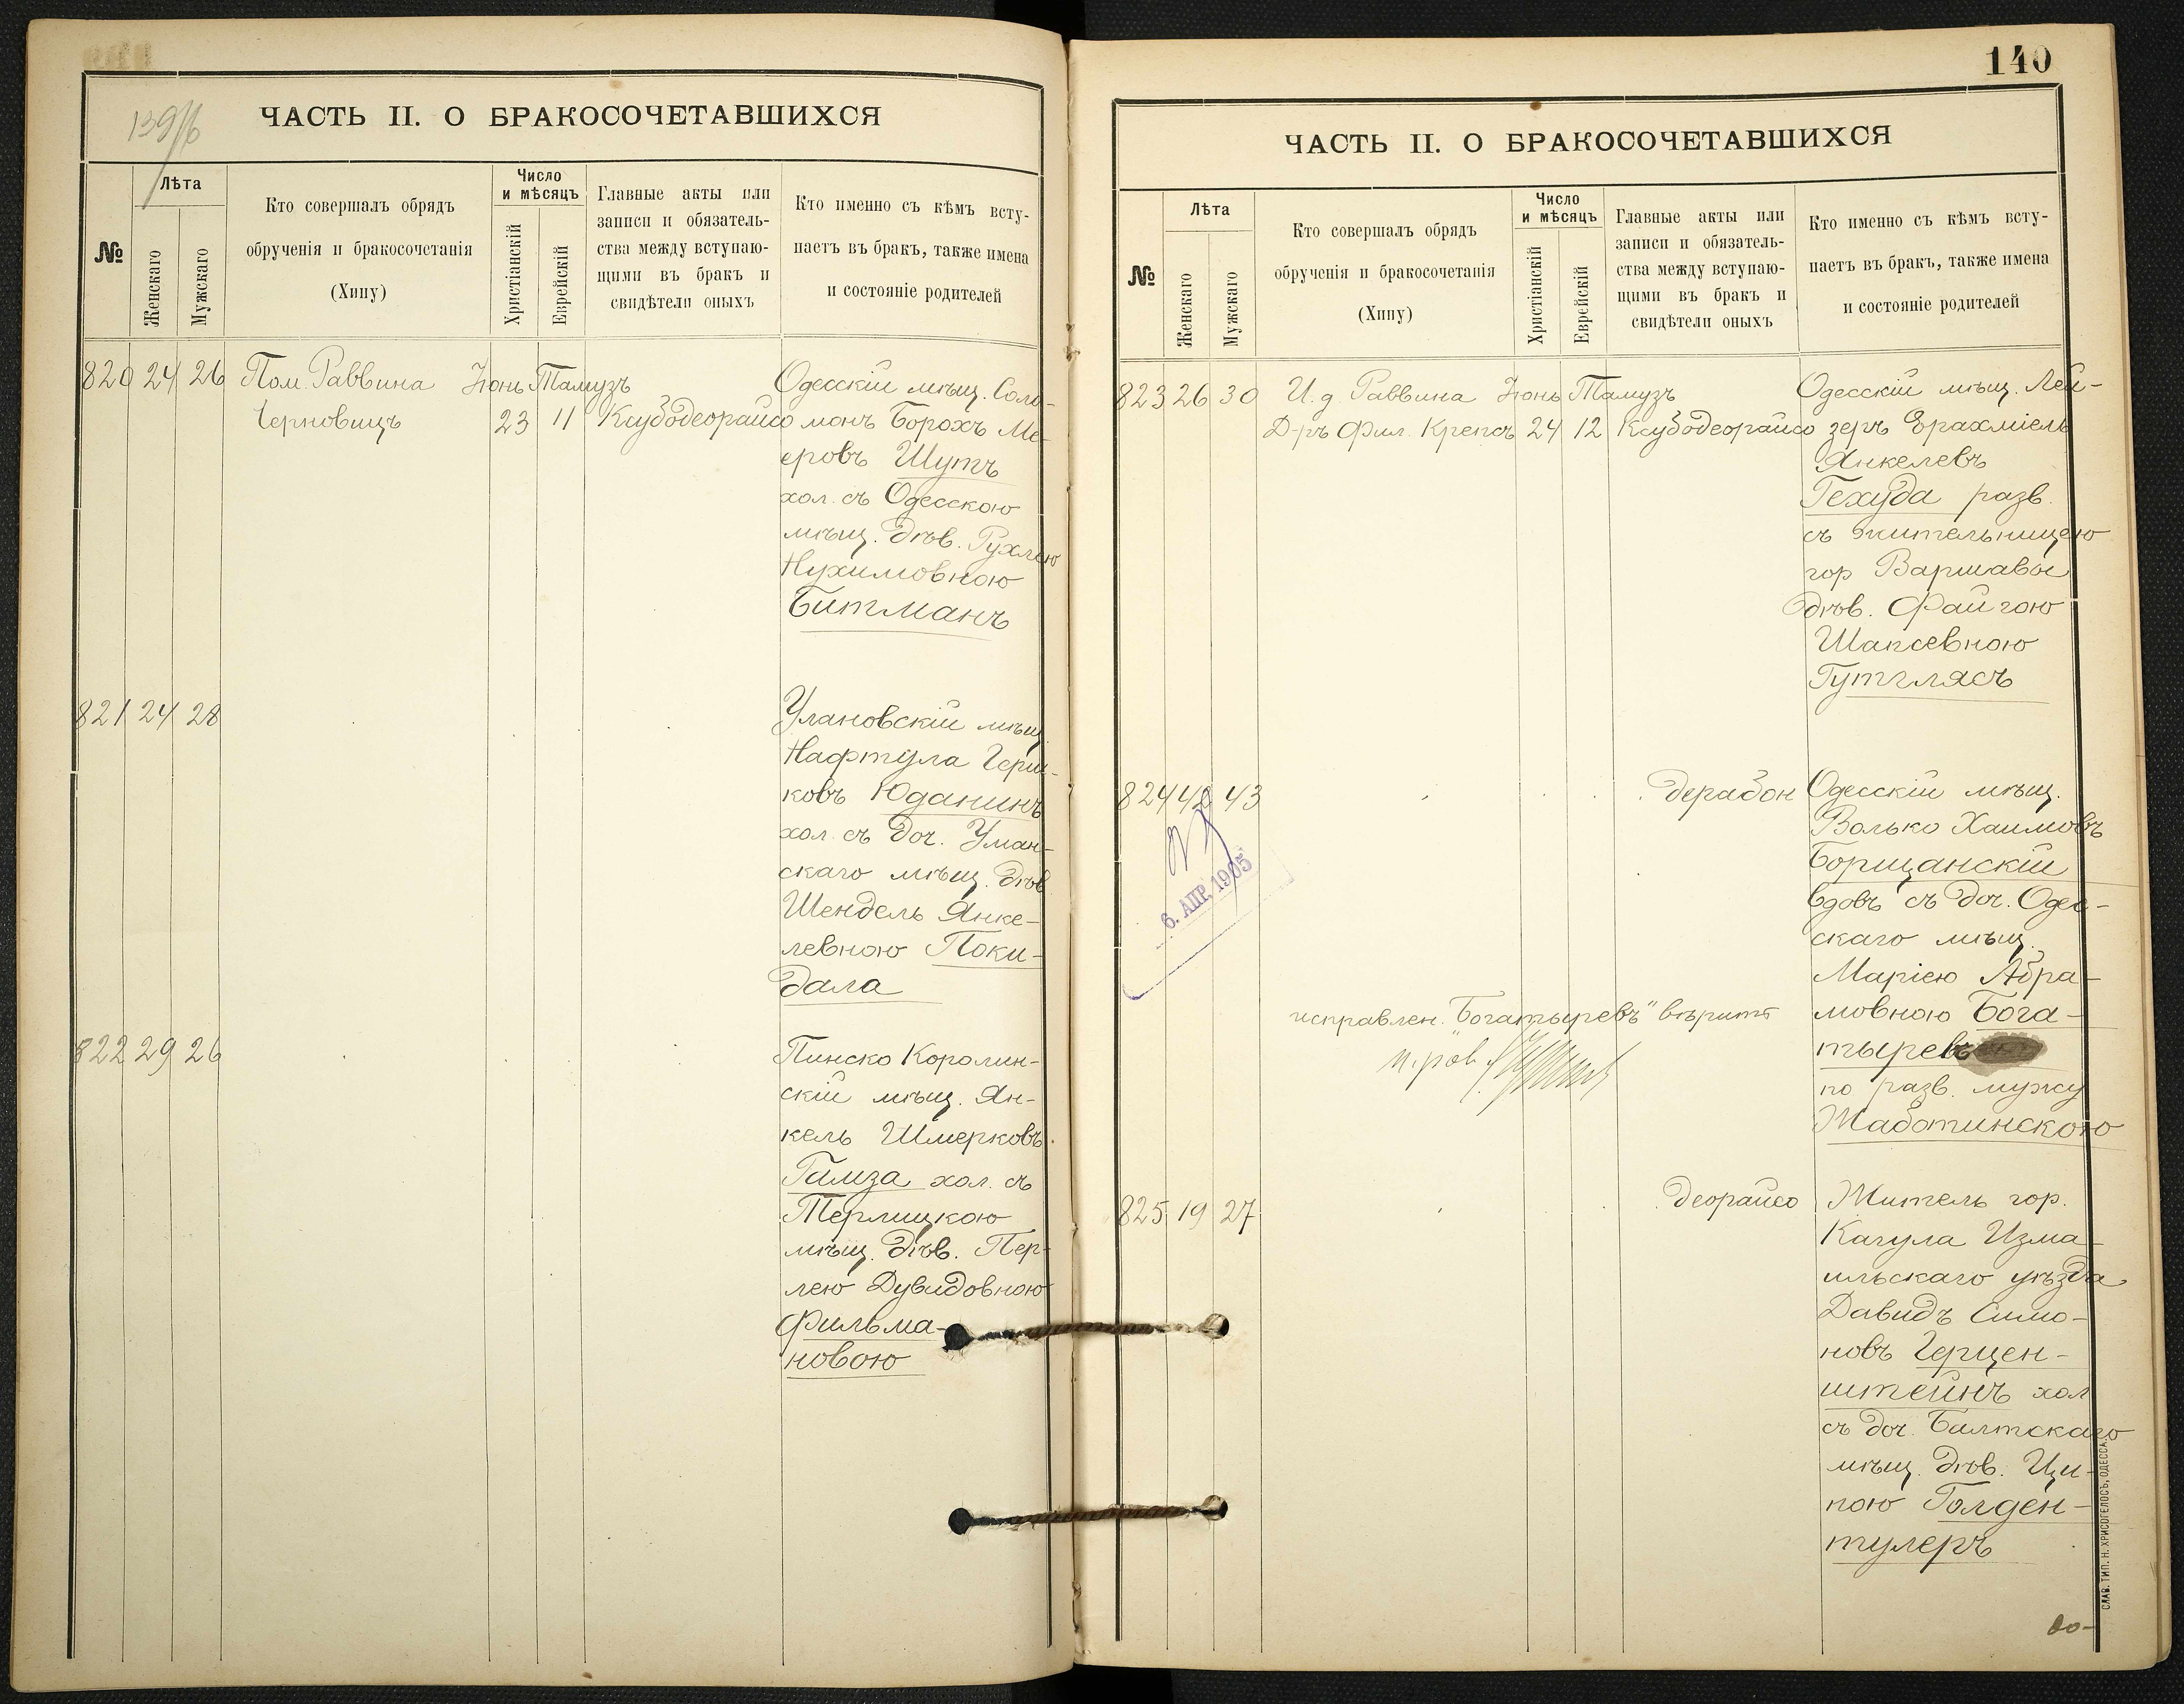 139/б
ЧАСТЬ II. О БРАКОСОЧЕТАВШИХСЯ
№
Лѣта
Женскаго
Мужскаго
Кто совершалъ обрядъ
обрученія и бракосочетанія
(Хипу)
Число
и мѣсяцъ
Христіанскій
Еврейскій
Главные акты или
записи и обязатель-
ства между вступаю-
щими въ бракъ и
свидѣтели оныхъ
Кто именно съ кѣмъ всту-
паетъ въ бракъ, также имена
и состояніе родителей
820 24 26 Пом. Раввина Іюнь Тамузъ Одесскій мѣщ. Соло-
Черновицъ 23 11 Ксубодеорайсо монъ Борохъ Ме-
еровъ Шутъ
хол. съ Одесскою
мѣщ. дѣв. Рухлею
Нухимовною
Битманъ
821 24 28 Улановскій мѣщ.
Нафтула Герш-
ковъ Юданинъ
хол. съ доч. Уман-
скаго мѣщ. дѣв.
Шендель Янке-
левною Поки-
дала
822 29 26 Пинско Королин-
скій мѣщ. Ян-
кель Шмерковъ
Гамза хол. съ
Терлицкою
мѣщ. дѣв. Пер-
лею Дувидовною
Фильма-
новою
140
ЧАСТЬ II. О БРАКОСОЧЕТАВШИХСЯ
№
Лѣта
Женскаго
Мужскаго
Кто совершалъ обрядъ
обрученія и бракосочетанія
(Хипу)
Число
и мѣсяцъ
Христіанскій
Еврейскій
Главные акты или
записи и обязатель-
ства между вступаю-
щими въ бракъ и
свидѣтели оныхъ
Кто именно съ кѣмъ всту-
паетъ въ бракъ, также имена
и состояніе родителей
823 26 30 И. д. Раввина Іюнь Тамузъ Одесскій мѣщ. Лей-
Д-ръ Фил. Крепсъ 24 12 Ксубодеорайсо зеръ Ерахміель
Янкелевъ
Гехуда разв.
съ жительницею
гор Варшавы
дѣв. Файгою
Шапсевною
Гутглясъ
824 40 43 дерабон Одесскій мѣщ.
Волько Хаимовъ
Борщанскій
вдовъ съ доч. Одес-
скаго мѣщ.
Маріею Абра-
мовною Бога-
тыревъ
по разв. мужу
Жаботинскою
6. АПР. 1905
исправлен. "Богатыревъ" вѣрить
825 19 27 деорайсо Житель гор.
Кагула Изма-
ильскаго уѣзда
Давидъ Симо-
новъ Герцен-
штейнъ хол
съ доч. Балтскаго
мѣщ. дѣв. Ци-
пою Голден-
тулеръ
до-
СЛАВ. ТИП. Н. ХРИСОГЕЛОСЪ, ОДЕССА.